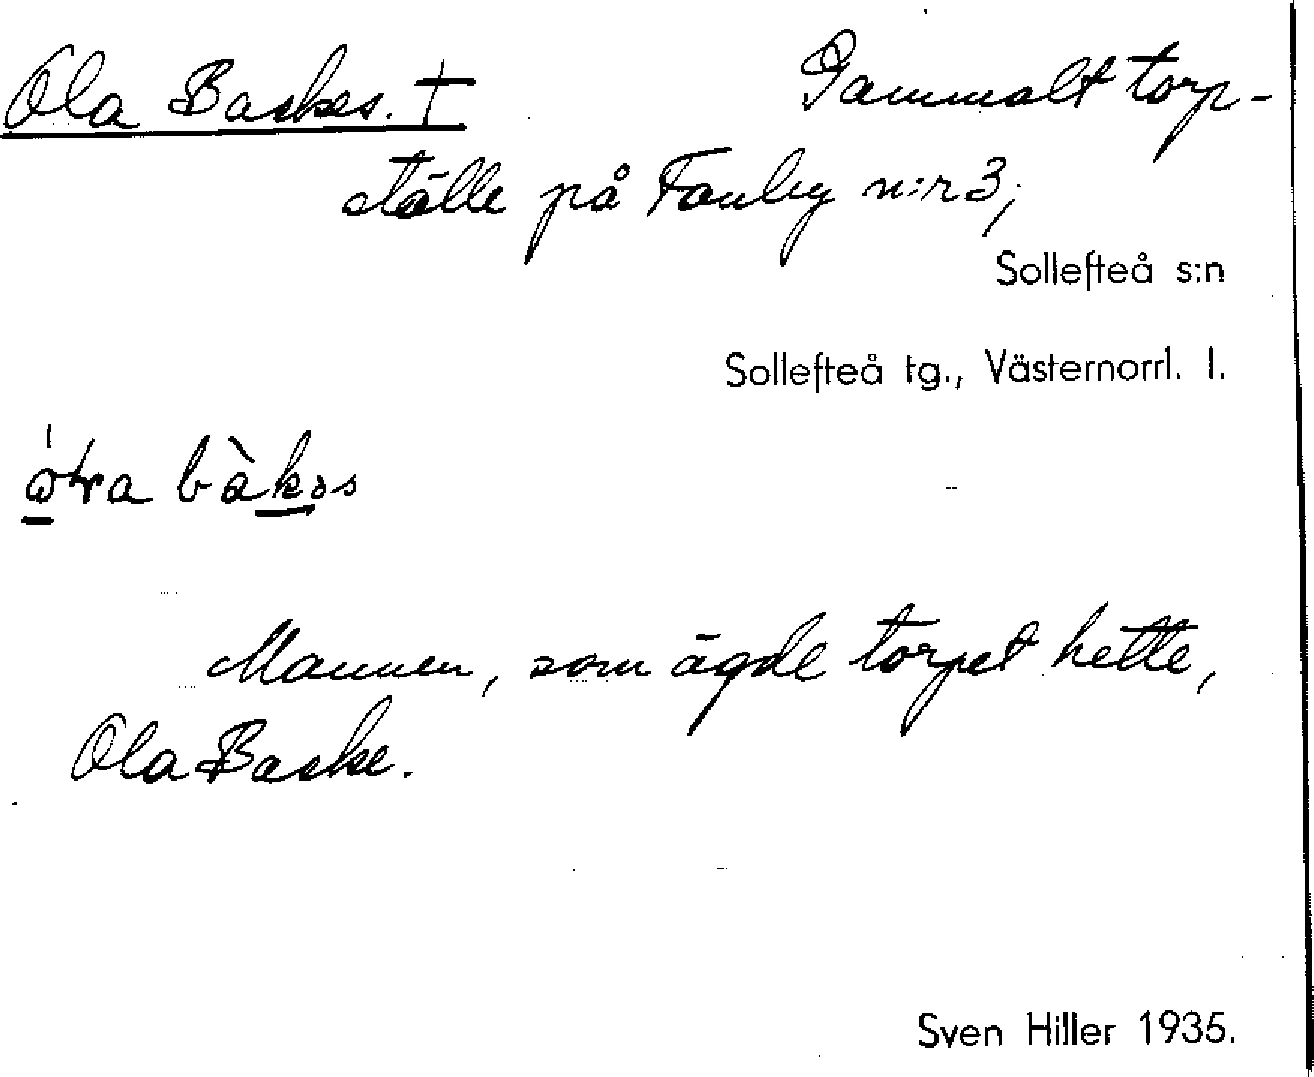 Ola Backes. † Gammalt torp-
ställe på Fanby n:r 3;
Sollefteå s:n
Sollefteå tg., Västernorrl. l.
Mannen, som ägde torpet hette,
Ola Backe.
Sven Hiller 1935.